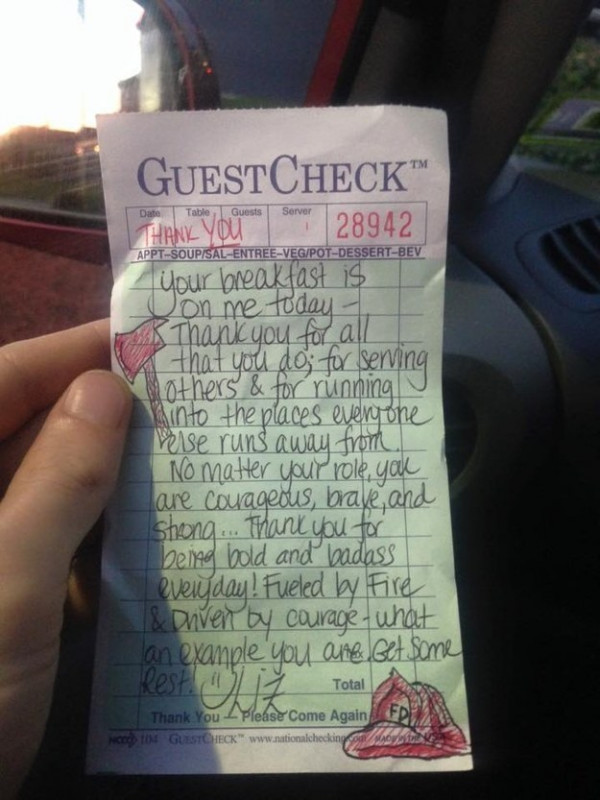 GUESTCHECK™
Date Table Guests Server 28942
THANK YOU
APPT-SOUP/SAL-ENTREE-VEG/POT-DESSERT-BEV
your breakfast is
on me today -
Thank you for all
that you do; for serving
others & for running
into the places everyone
else runs away from.
No matter your role, you
are courageous, brave, and
strong... Thank you for
being bold and badass
everyday! Fueled by Fire
& Driven by courage - what
an example you are. Get Some
Rest! Liz
Total
Thank You - Please Come Again
FD
104 GUESTCHECK™ www.nationalchecking.com MADE IN THE USA